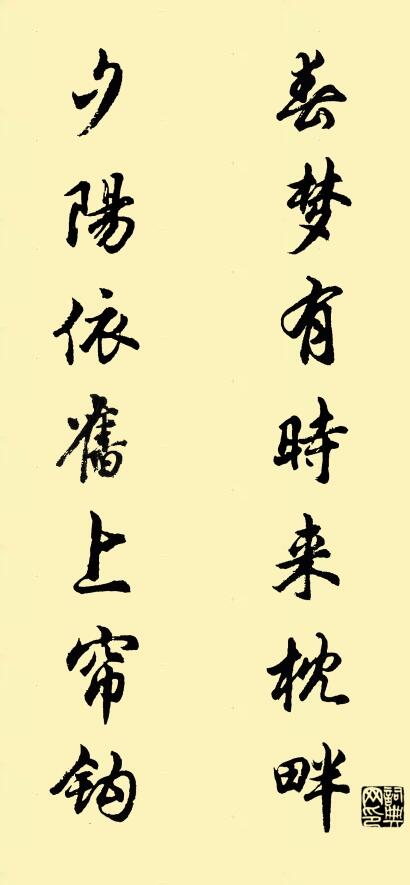 春梦有時来枕畔
夕陽依舊上帘钩
詞典网印